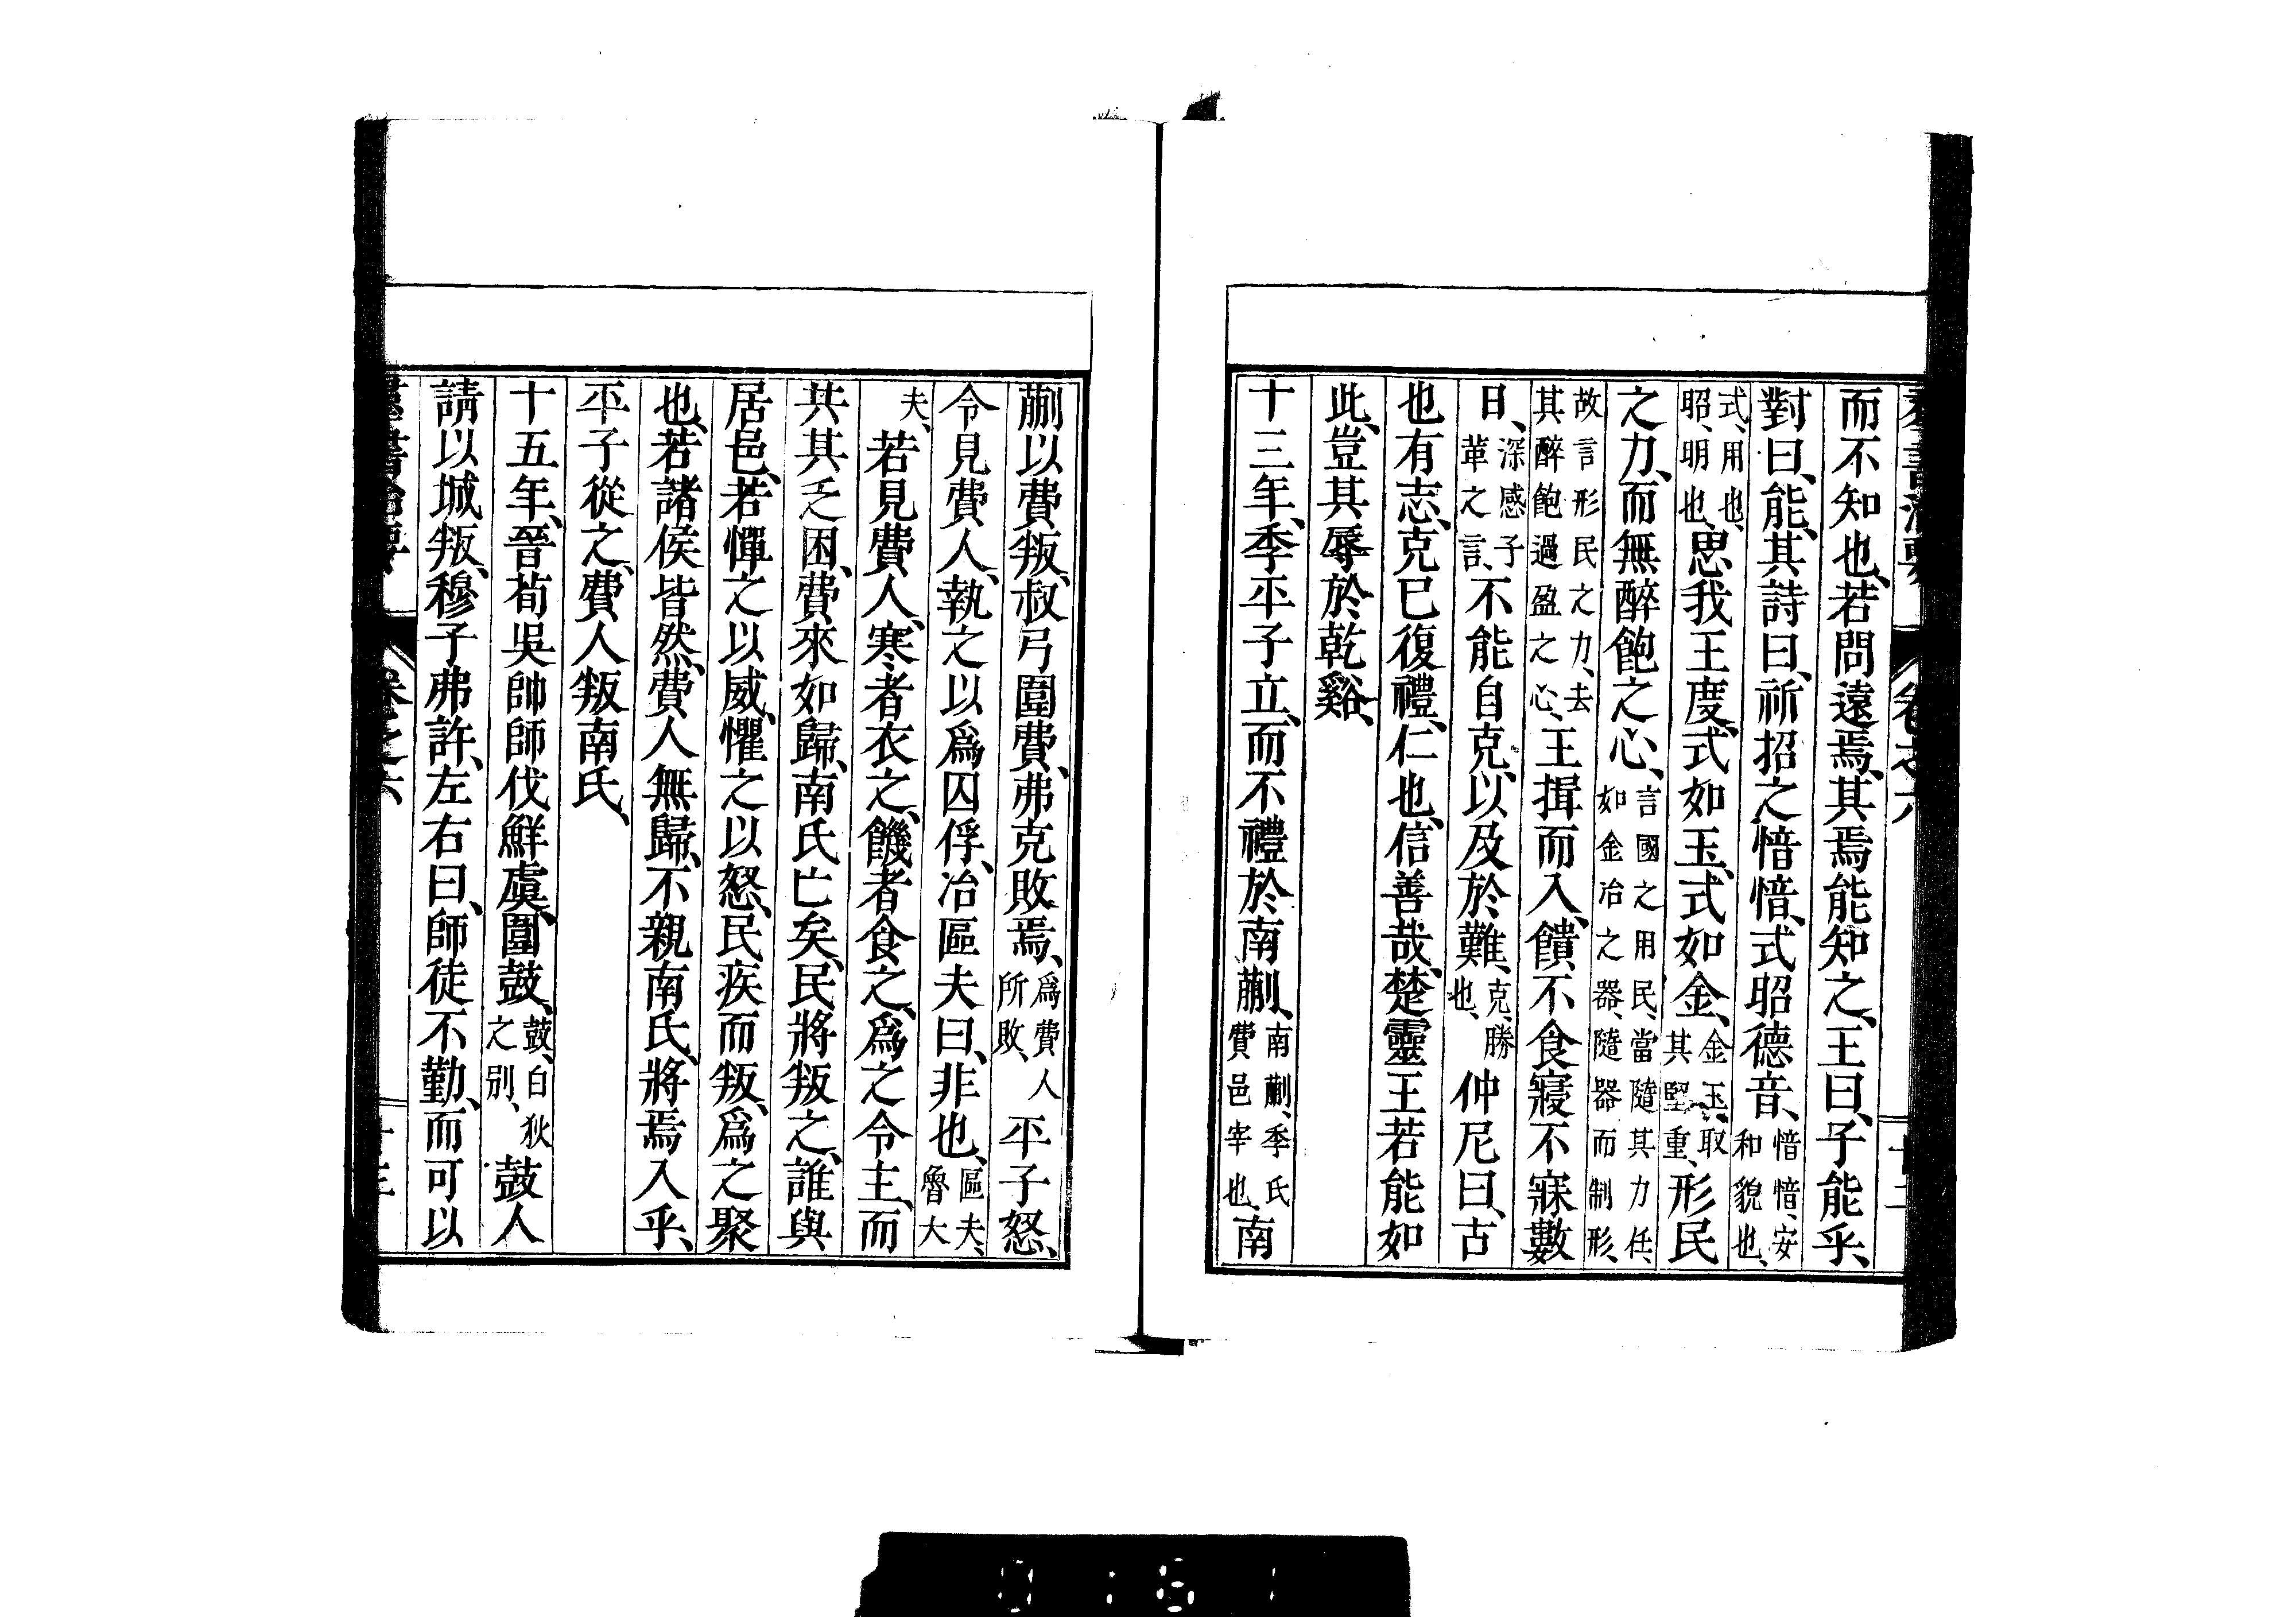 羣書治要 卷之六 十二
而不知也、若問遠焉、其焉能知之、王曰、子能乎、
對曰、能、其詩曰、祈招之愔愔、式昭德音、愔愔、安和貌也、
式、用也、昭、明也、思我王度、式如玉、式如金、金玉、取其堅重、形民
之力、而無醉飽之心、言國之用民、當隨其力任、如金冶之器、隨器而制形、
故言形民之力、去其醉飽過盈之心、王揖而入、饋不食、寢不寐、數
日、深感子革之言、不能自克、以及於難、克、勝也、仲尼曰、古
也有志、克己復禮、仁也、信善哉、楚靈王若能如
此、豈其辱於乾谿、
十三年、季平子立、而不禮於南蒯、南蒯、季氏費邑宰也、南
蒯以費叛、叔弓圍費、弗克敗焉、爲費人所敗、平子怒、
令見費人、執之以爲囚俘、冶區夫曰、非也、區夫、魯大
夫、若見費人、寒者衣之、饑者食之、爲之令主、而
共其乏困、費來如歸、南氏亡矣、民將叛之、誰與
居邑、若憚之以威、懼之以怒、民疾而叛、爲之聚
也、若諸侯皆然、費人無歸、不親南氏、將焉入乎、
平子從之、費人叛南氏、
十五年、晉荀吳帥師伐鮮虞、圍鼓、鼓、白狄之別、鼓人
請以城叛、穆子弗許、左右曰、師徒不勤、而可以
羣書治要 卷之六